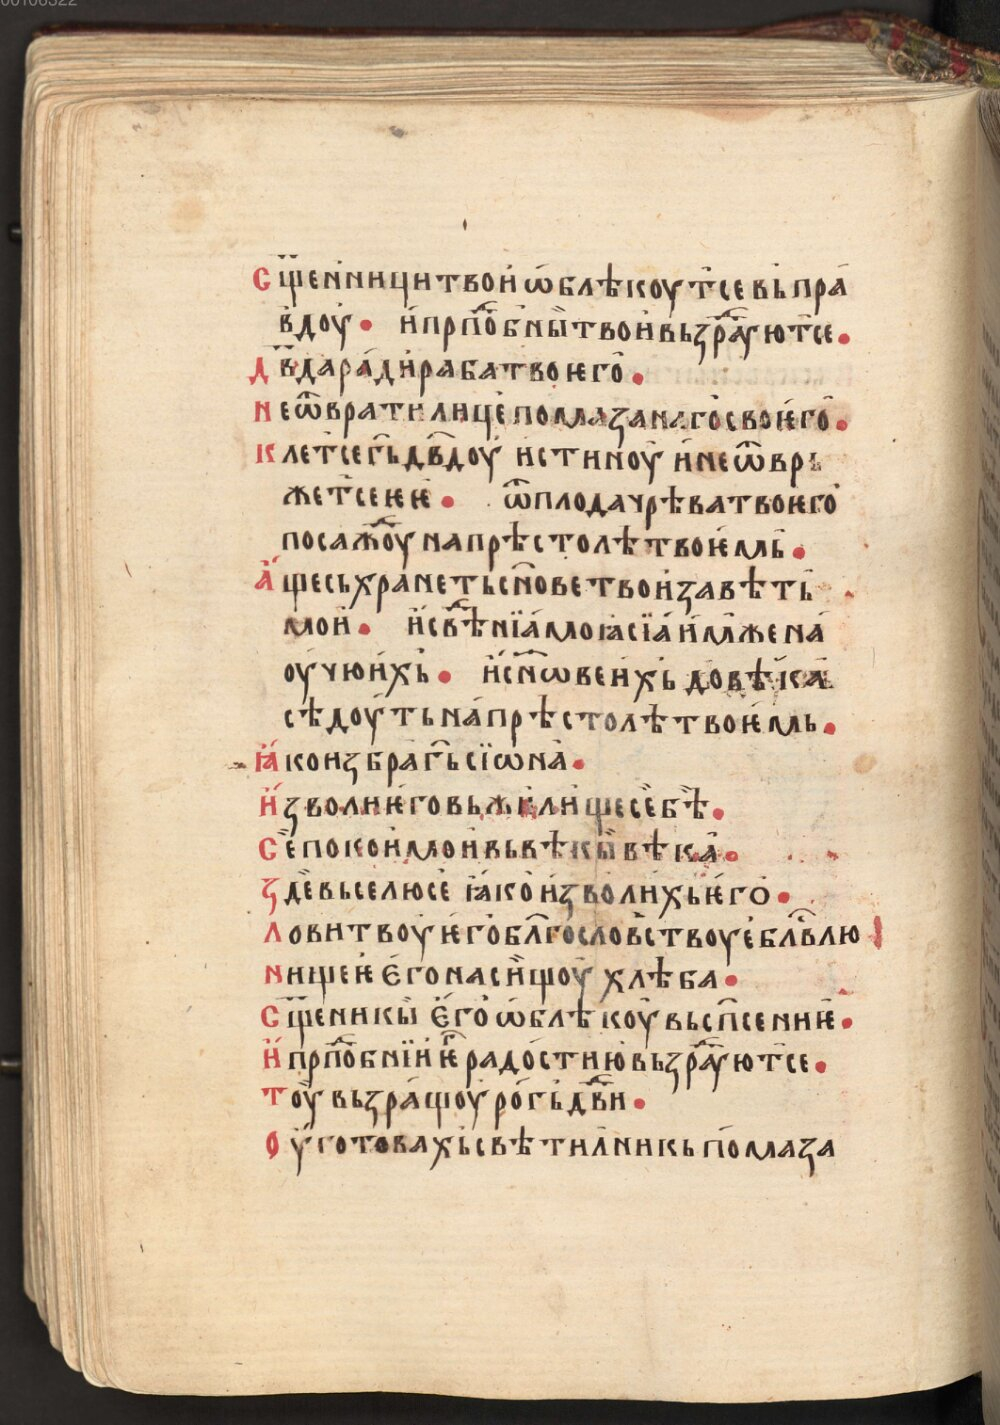 00108322
Сщ҃енници твои ѡблѣкоут се вь пра
вдоу • и прпⷣобны твои вьзраⷣуют се •
Дв҃да ради раба твоѥго •
Не ѿврати лице помазанаго своѥго •
Клет се гь҃ дв҃доу истиноу и не ѿврь
жет се ѥѥ • ѿ плода чрѣва твоѥго
посаж҃оу на прѣстолѣ твоѥмь •
Аще сьхранеть сн҃ове твои завѣть
мои • и свⷣѣнїа моꙗ сїа имже на
оучю ихь • и сн҃ѡве ихь до вѣка
сѣдоуть на прѣстолѣ твоѥмь •
Ꙗко избра гь҃ сїѡна •
Изволи ѥго вь жилище себѣ •
Се покои мои вь вѣкы вѣка •
Зде вьселю се ꙗко изволихь ѥго •
Ловитвоу ѥго блгⷭословьствоуе блв҃лю
Нищеѥ ѥго насищоу хлѣба •
Сщ҃еникы ѥго ѡблѣкоу вь сп҃сениѥ •
И прпⷣобнїи ѥⷢ радостию вьзраⷣуют се •
Тоу вьзращоу рогь дв҃ви •
Оуготовахь свѣтилникь помаза